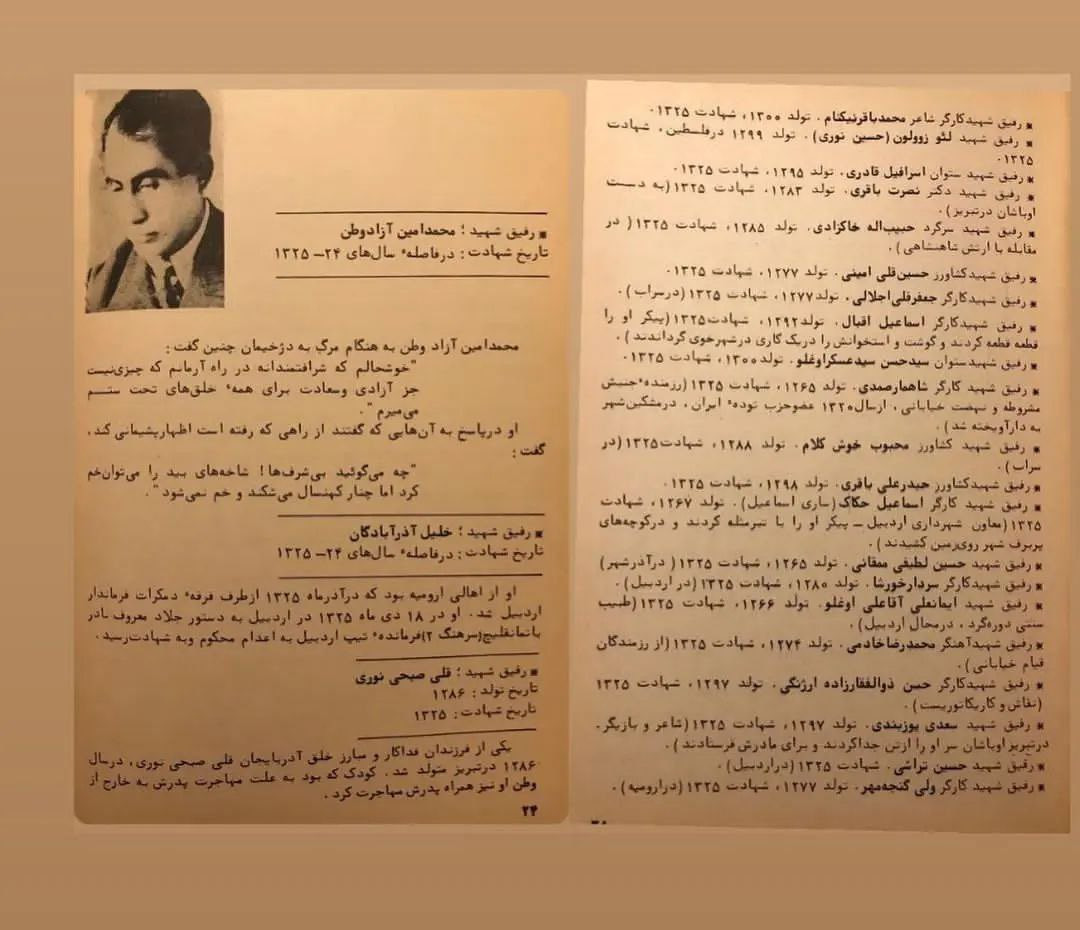 ▪ رفیق شهیدکارگر شاعر محمدباقرنیکنام. تولد ۱۳۰۰، شهادت ۱۳۲۵.
▪ رفیق شهید لئو زوولون (حسین نوری). تولد ۱۲۹۹ درفلسطین، شهادت
۱۳۲۵.
▪ رفیق شهید ستوان اسرافیل قادری. تولد ۱۲۹۵، شهادت ۱۳۲۵.
▪ رفیق شهید دکتر نصرت باقری. تولد ۱۲۸۳، شهادت ۱۳۲۵(به دست
اوباشان درتبریز).
▪ رفیق شهید سرگرد حبیب‌اله خاکزادی. تولد ۱۲۸۵، شهادت ۱۳۲۵( در
مقابله با ارتش شاهنشاهی).
▪ رفیق شهیدکشاورز حسین‌قلی امینی. تولد ۱۲۷۷، شهادت ۱۳۲۵.
▪ رفیق شهیدکارگر جعفرقلی‌اجلالی، تولد۱۲۷۷، شهادت ۱۳۲۵(درسراب).
▪ رفیق شهیدکارگر اسماعیل اقبال. تولد۱۲۹۲، شهادت۱۳۲۵(پیکر او را
قطعه قطعه کردند و گوشت و استخوانش را دریک گاری درشهرخوی گرداندند).
▪ رفیق شهیدستوان سیدحسن سیدعسکراوغلو. تولد۱۳۰۰، شهادت ۱۳۲۵.
▪ رفیق شهید کارگر شاهمارصمدی. تولد ۱۲۶۵، شهادت ۱۳۲۵(رزمندهٔ جنبش
مشروطه و نهضت خیابانی، ازسال۱۳۲۰ عضوحزب تودهٔ ایران، درمشکین‌شهر
به دارآویخته شد).
▪ رفیق شهید کشاورز محبوب خوش کلام. تولد ۱۲۸۸، شهادت۱۳۲۵(در
سراب).
▪ رفیق شهیدکشاورز حیدرعلی باقری. تولد ۱۲۹۸، شهادت ۱۳۲۵.
▪ رفیق شهید کارگر اسماعیل حکاک(ساری اسماعیل). تولد ۱۲۶۷، شهادت
۱۳۲۵(معاون شهرداری اردبیل ــ پیکر او را با تبرمثله کردند و درکوچه‌های
پربرف شهر روی‌زمین کشیدند).
▪ رفیق شهید حسین لطیفی ممقانی. تولد ۱۲۶۵، شهادت ۱۳۲۵( درآذرشهر)
▪ رفیق شهیدکارگر سردارخورشا. تولد ۱۲۸۰، شهادت ۱۳۲۵(در اردبیل).
▪ رفیق شهید ایمانعلی آقاعلی اوغلو. تولد ۱۲۶۶، شهادت ۱۳۲۵(طبیب
سنتی دوره‌گرد، درمحال اردبیل).
▪ رفیق شهیدآهنگر محمدرضاخادمی. تولد ۱۲۷۴، شهادت ۱۳۲۵(از رزمندگان
قیام خیابانی).
▪ رفیق شهیدکارگر حسن ذوالفقارزاده ارژنگی. تولد ۱۲۹۷، شهادت ۱۳۲۵
(نقاش و کاریکاتوریست).
▪ رفیق شهید سعدی یوزبندی. تولد ۱۲۹۷، شهادت ۱۳۲۵(شاعر و بازیگر.
درتبریز اوباشان سر او را ازتن جداکردند و برای مادرش فرستادند).
▪ رفیق شهید حسین تراشی. شهادت ۱۳۲۵(دراردبیل).
▪ رفیق شهید کارگر ولی گنجه‌مهر. تولد ۱۲۷۷، شهادت ۱۳۲۵(درارومیه).
▪ رفیق شهید؛ محمدامین آزادوطن
تاریخ شهادت: درفاصلهٔ سال‌های ۲۴ــ ۱۳۲۵
محمدامین آزاد وطن به هنگام مرگ به دژخیمان چنین گفت:
"خوشحالم که شرافتمندانه در راه آرمانم که چیزی‌نیست
جز آزادی وسعادت برای همهٔ خلق‌های تحت ستم
می‌میرم".
او درپاسخ به آن‌هایی که گفتند از راهی که رفته است اظهارپشیمانی کند،
گفت:
"چه می‌گوئید بی‌شرف‌ها! شاخه‌های بید را می‌توان‌خم
کرد اما چنار کهنسال می‌شکند و خم نمی‌شود".
▪ رفیق شهید؛ خلیل آذرآبادگان
تاریخ شهادت: درفاصلهٔ سال‌های ۲۴ــ ۱۳۲۵
او از اهالی ارومیه بود که درآذرماه ۱۳۲۵ ازطرف فرقهٔ دمکرات فرماندار
اردبیل شد. او در ۱۸ دی ماه ۱۳۲۵ در اردبیل به دستور جلاد معروف نادر
باتمانقلیچ(سرهنگ ۲)فرماندهٔ تیپ اردبیل به اعدام محکوم وبه شهادت‌رسید.
▪ رفیق شهید؛ قلی صبحی نوری
تاریخ تولد: ۱۲۸۶
تاریخ شهادت: ۱۳۲۵
یکی از فرزندان فداکار و مبارز خلق آذربایجان قلی صبحی نوری، درسال
۱۲۸۶ درتبریز متولد شد. کودک که بود به علت مهاجرت پدرش به خارج از
وطن او نیز همراه پدرش مهاجرت کرد.
۲۴